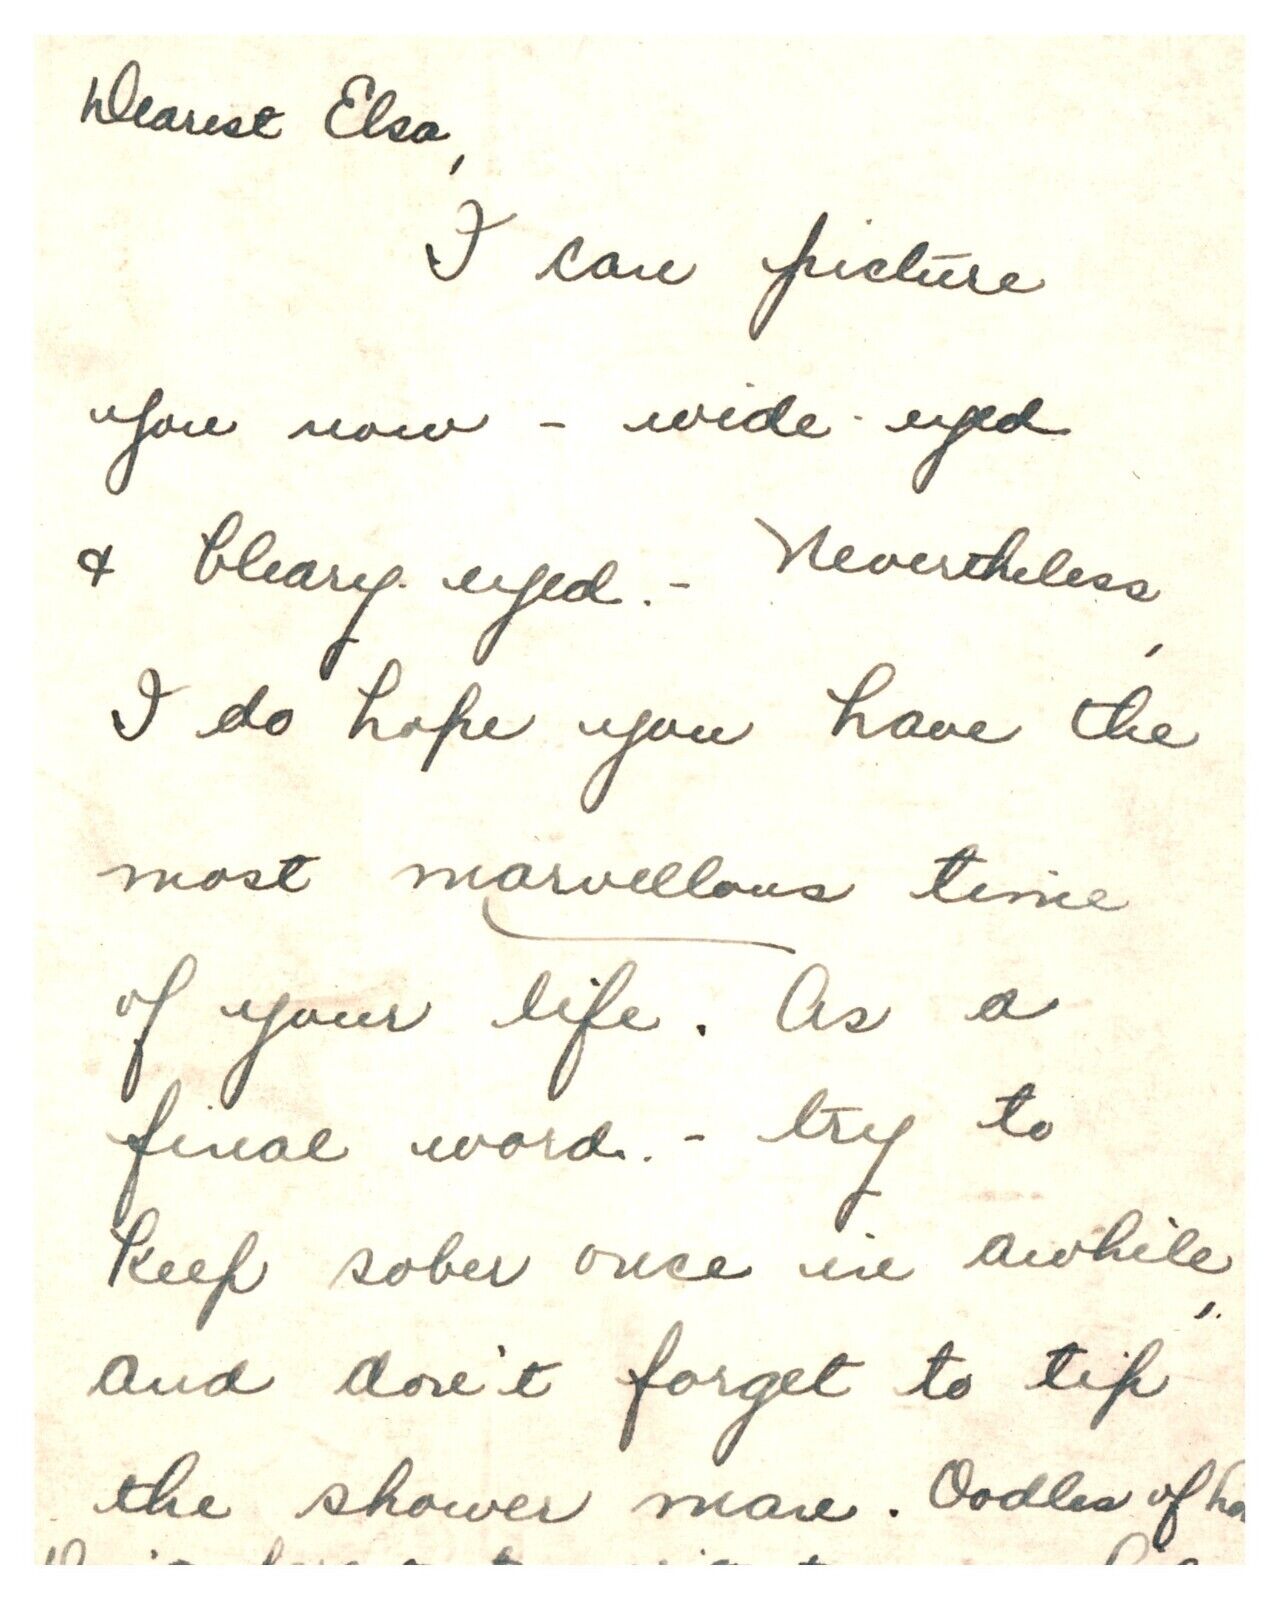 Dearest Elsa,
I can picture
you now - wide-eyed
& bleary-eyed. - Nevertheless,
I do hope you have the
most marvellous time
of your life. As a
final word. - try to
keep sober once in awhile,
and don't forget to tip
the shower man. Oodles of